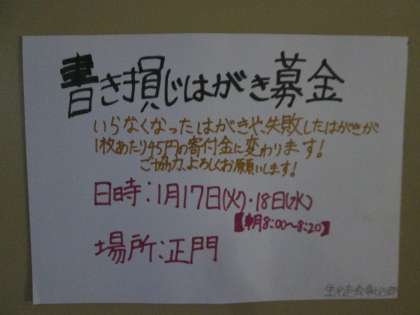 書き損じはがき募金
いらなくなったはがきや、失敗したはがきが
1枚あたり45円の寄付金に変わります!
ご協力よろしくお願いします!
日時:1月17日(火)・18日(水)
【朝8:00~8:20】
場所:正門